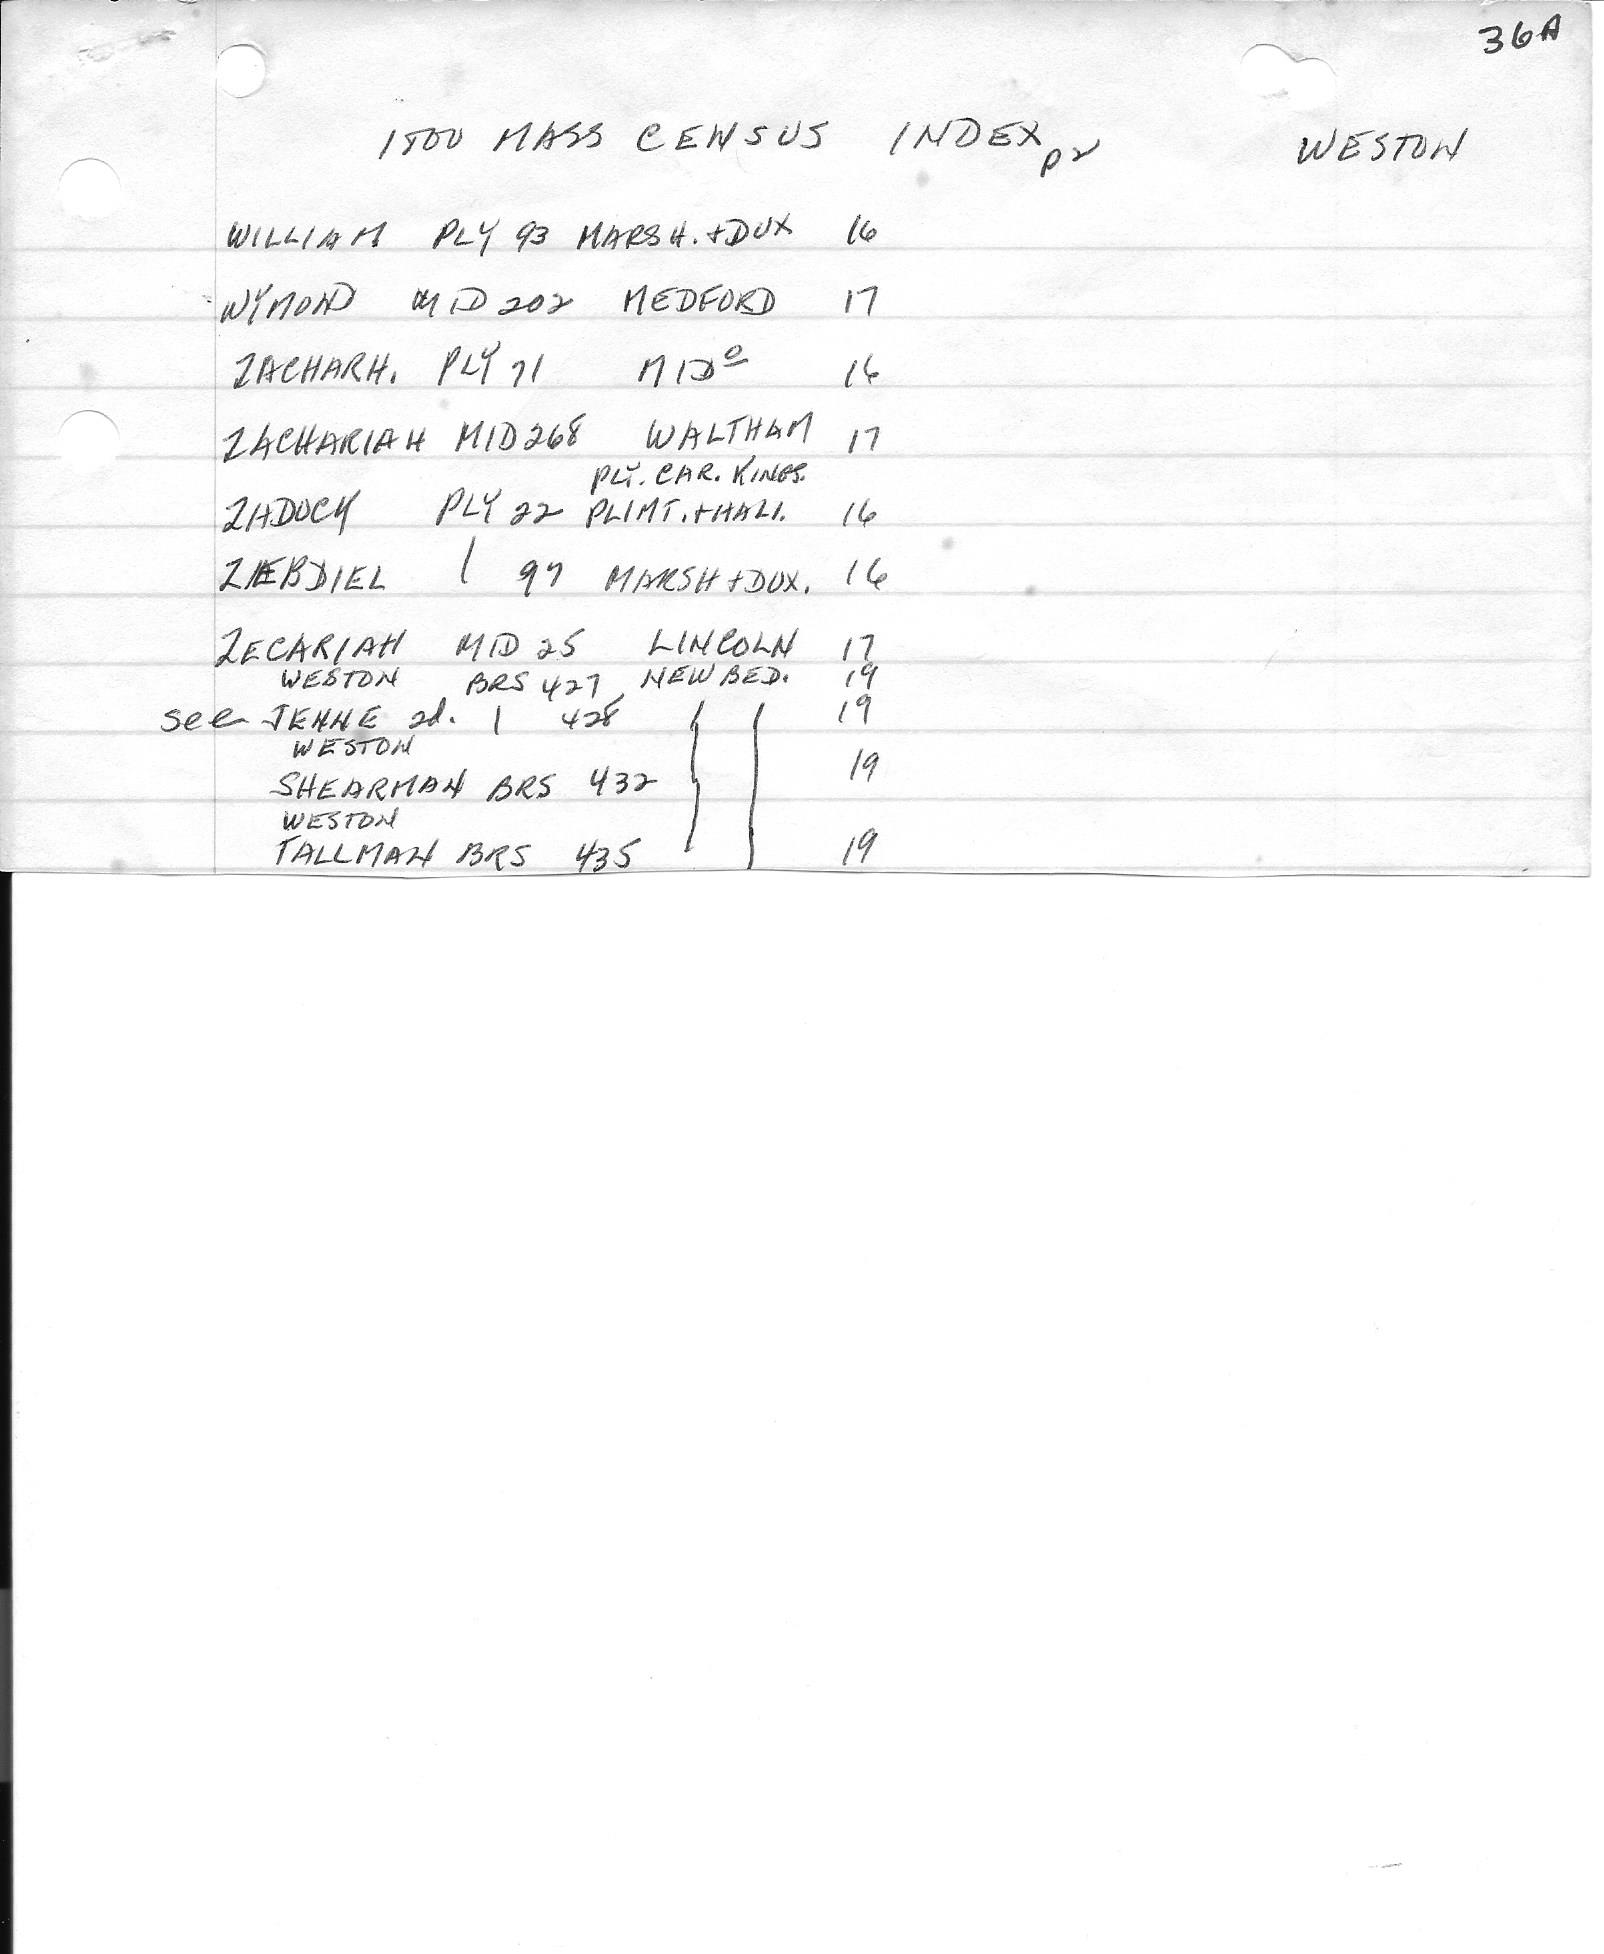 36A
1800 MASS CENSUS INDEX p2 WESTON
WILLIAM PLY 93 MARSH. + DUX 16
WYMOND MID 202 MEDFORD 17
ZACHARH. PLY 71 MIDº 16
ZACHARIAH MID 268 WALTHAM 17
PLY. CAR. KINGS.
ZADOCK PLY 22 PLIMT. + HALI. 16
ZEBDIEL | 97 MARSH + DUX. 16
ZECARIAH MID 25 LINCOLN 17
WESTON BRS 427 NEW BED. 19
see JENNE 2d. | 428 19
WESTON
SHEARMAN BRS 432 19
WESTON
TALLMAN BRS 435 19